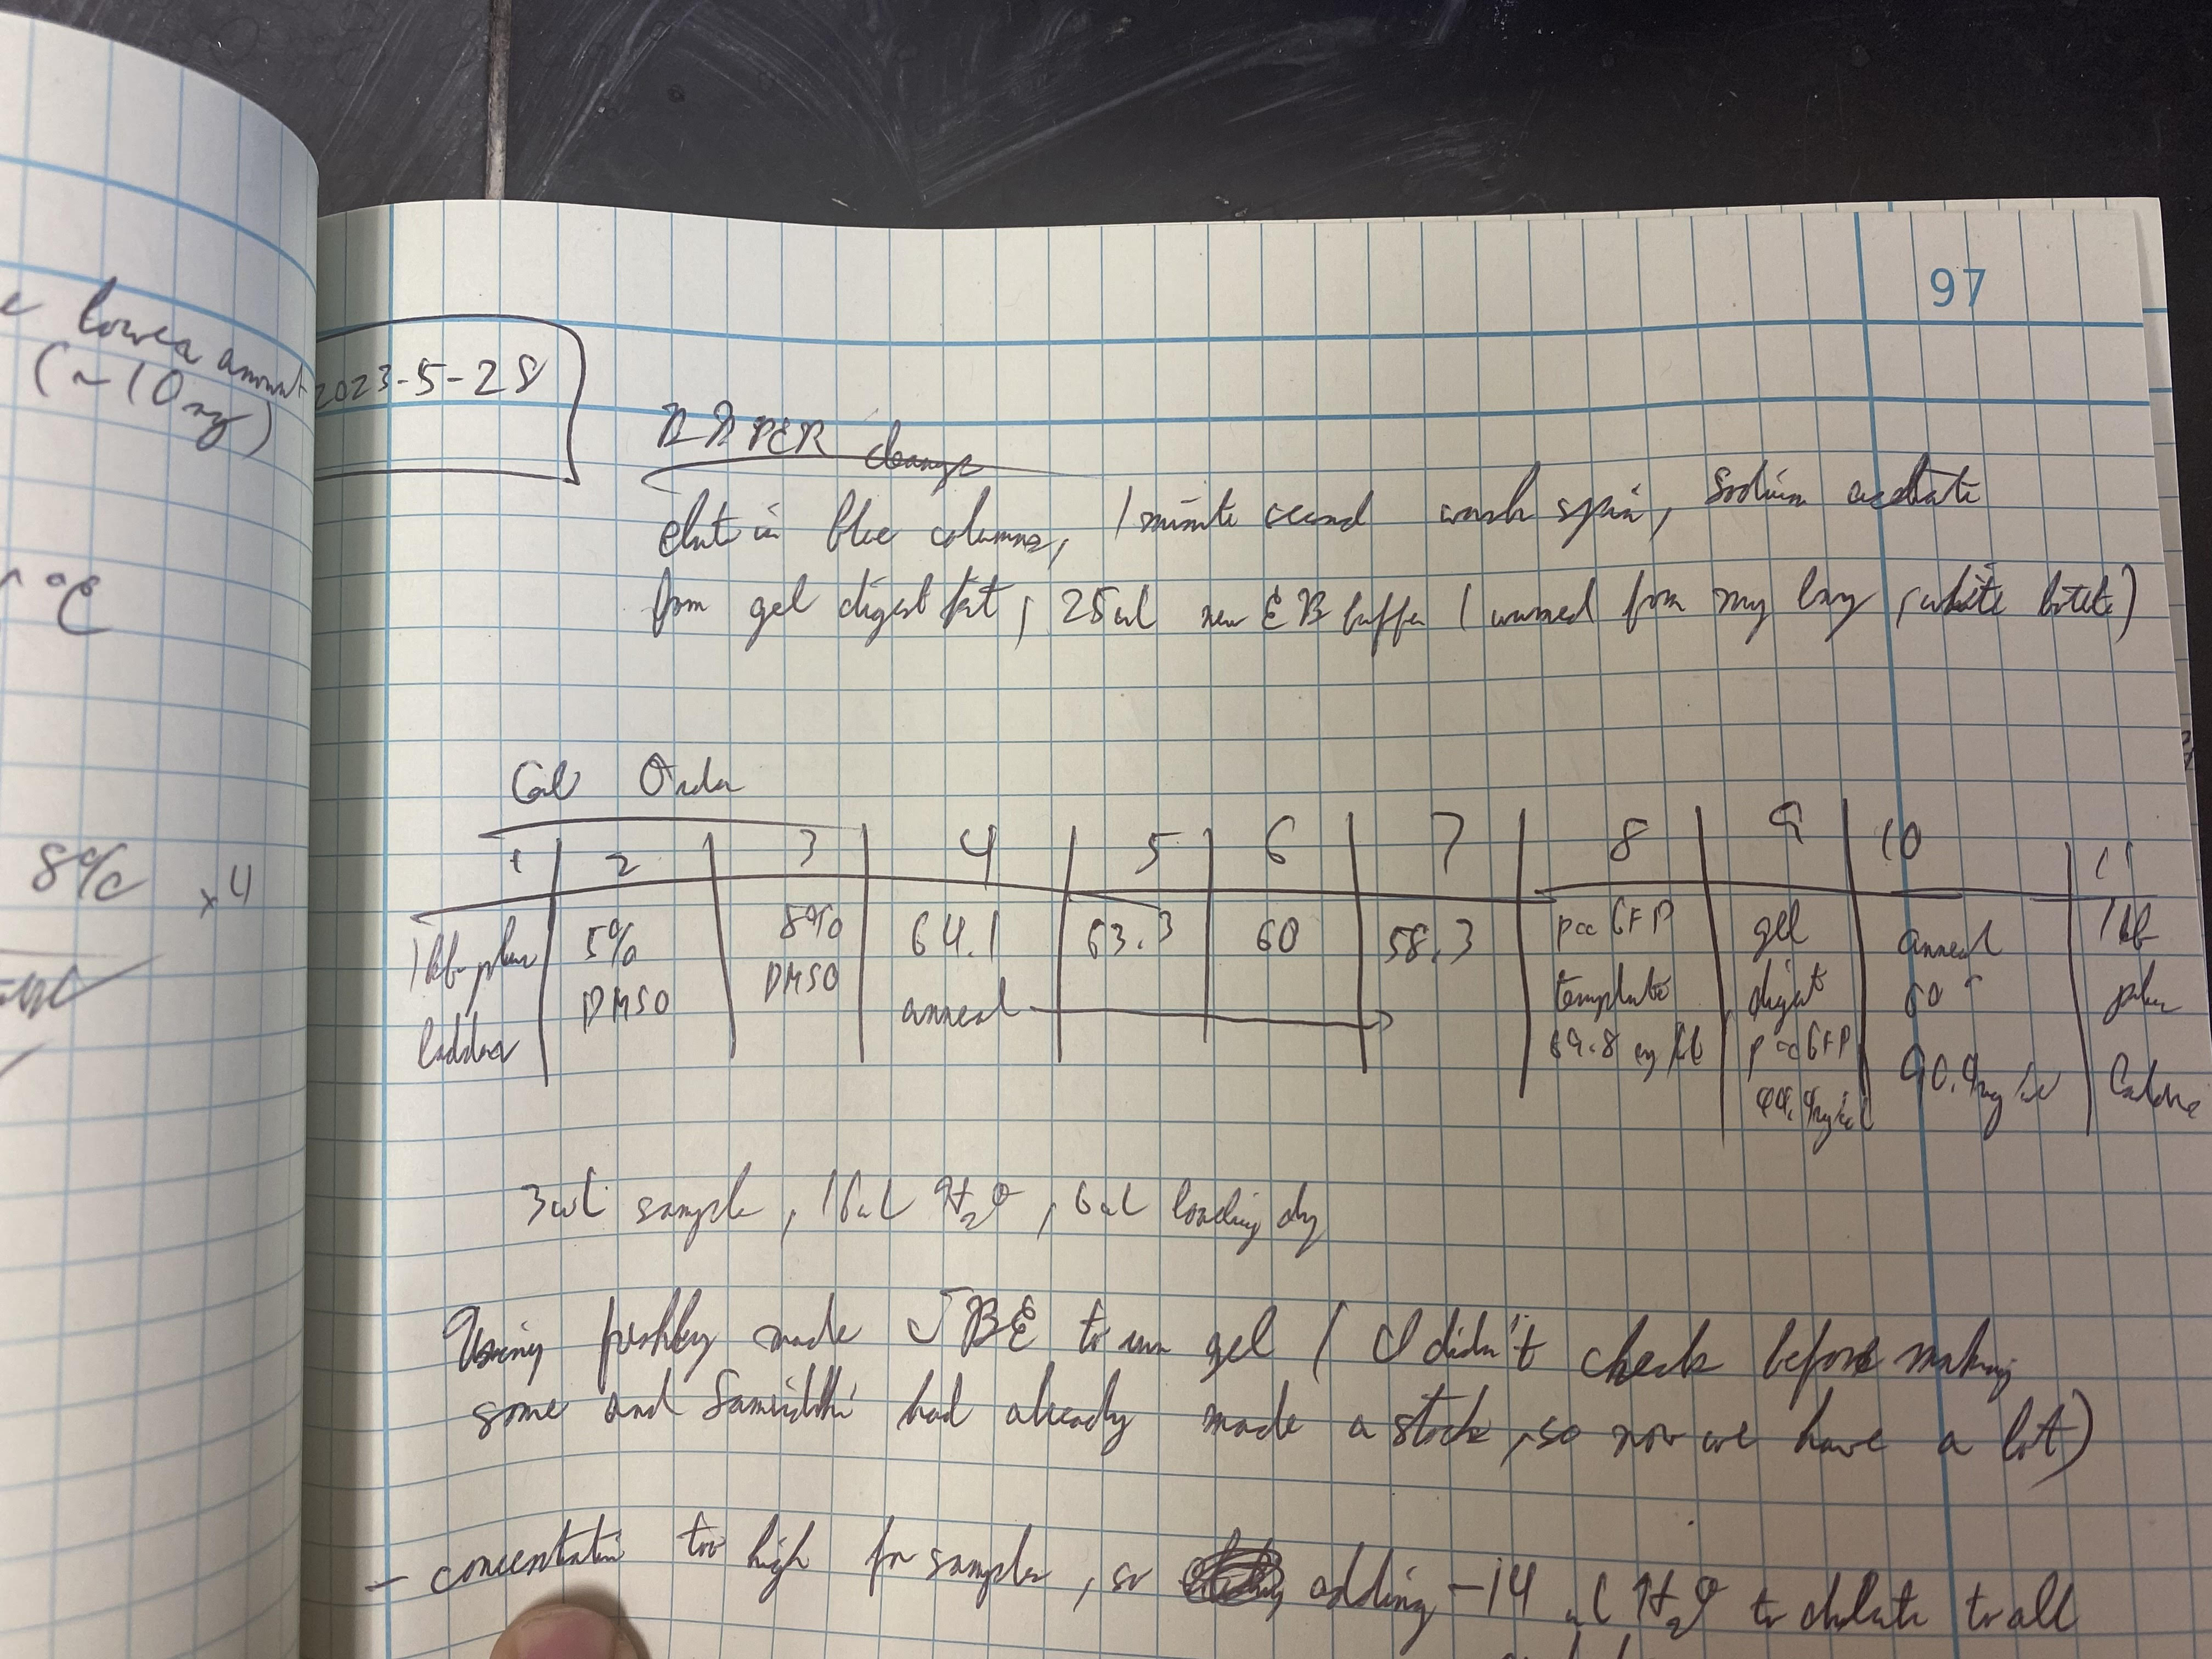 97
e lower amount
(~10ng)
°C
8%  x4
2023-5-28
PCR cleanup
elut in blue columns, 1 minute second wash spin, sodium acetate
from gel digest kit, 25ul new EB buffer (warmed from my bag, white bottle)
Gel Order
1 2 3 4 5 6 7 8 9 10 11
1kb plus 5% 8% 64.1 63.3 60 58.3 GFP gel anneal 1kb
ladder DMSO DMSO anneal template digest 60° plus
69.8 ng/ul GFP 90.9ng/ul ladder
3ul sample, 16ul H2O, 6ul loading dye
Using freshley made TBE to run gel (I didn't check before making
some and Samriddhi had already made a stock, so now we have a lot)
- concentration too high for samples, so adding -14 ul H2O to dilute to all